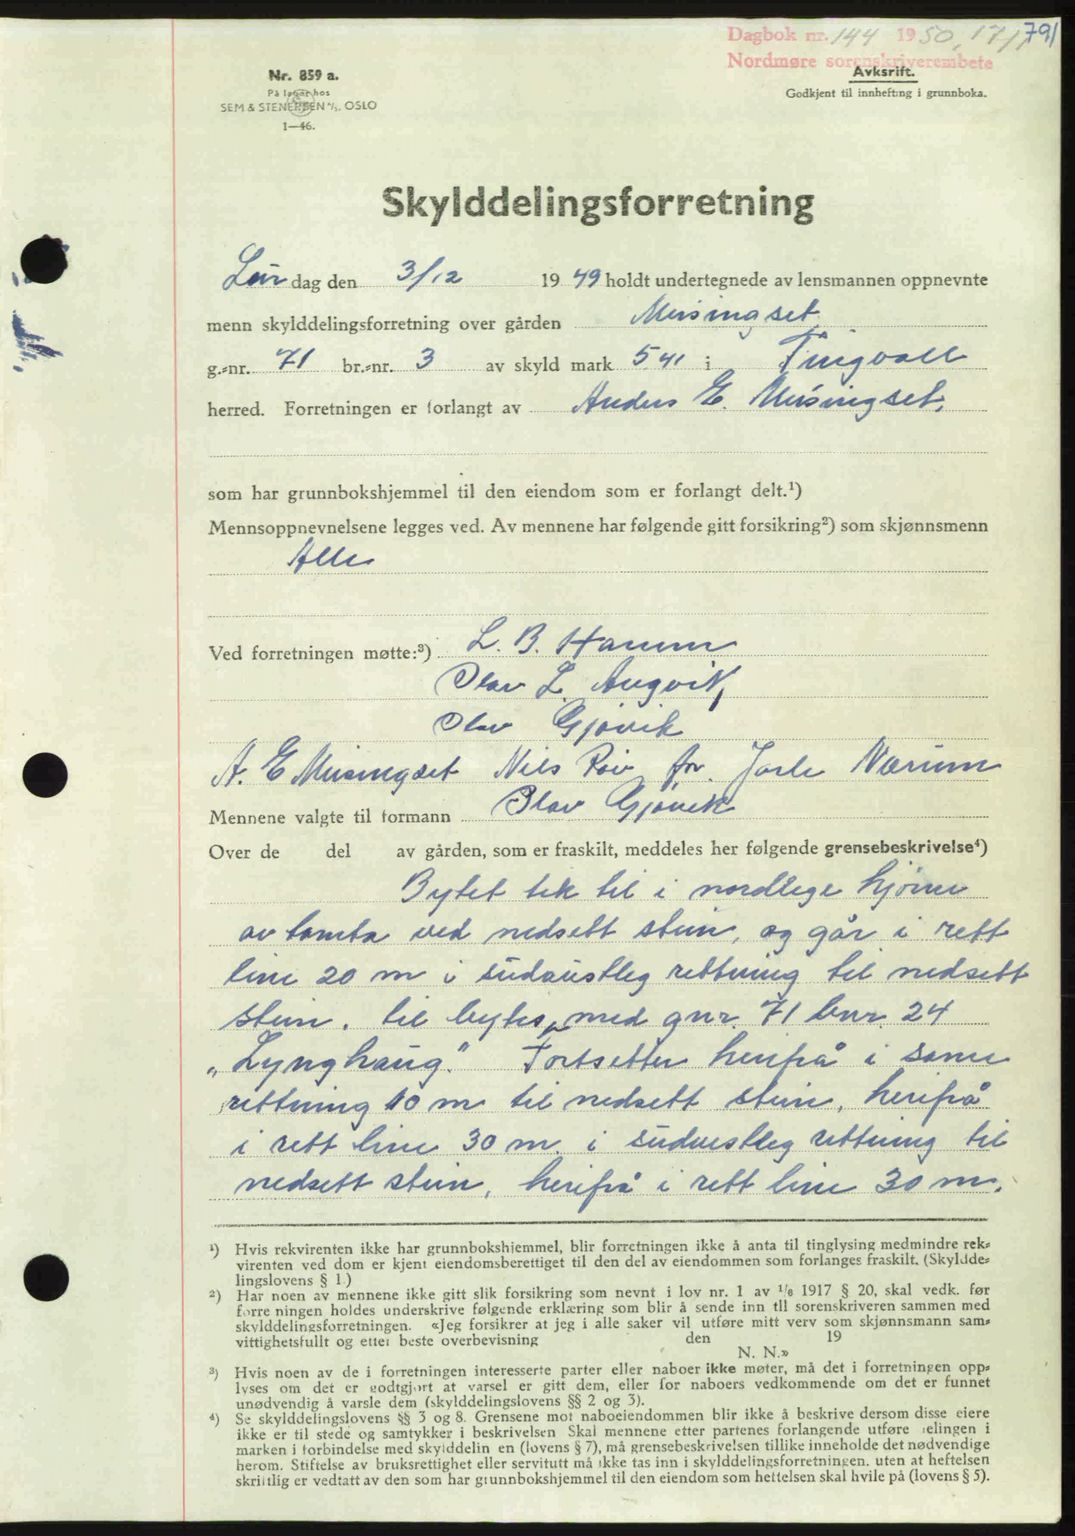 Dagbok nr. 144 1950, 17/1 791
Nordmøre sorenskriverembete
Nr. 859 a.
På lager hos
SEM & STENERSEN A/S, OSLO
1—46.
Avksrift.
Godkjent til innhefting i grunnboka.
Skylddelingsforretning
Laur dag den 3/12 1949 holdt undertegnede av lensmannen oppnevnte
menn skylddelingsforretning over gården Meisingset
g.-nr. 71 br.-nr. 3 av skyld mark 5.41 i Tingvoll
herred. Forretningen er forlangt av Anders E. Meisingset,
som har grunnbokshjemmel til den eiendom som er forlangt delt.¹)
Mennsoppnevnelsene legges ved. Av mennene har følgende gitt forsikring²) som skjønnsmenn
Alle
Ved forretningen møtte:³) L. B. Hamm
Olav L. Angvik,
Olav Gjøvik
A. E Meisingset Nils Roiv for Jarle Nærum
Mennene valgte til formann Olav Gjøvik
Over de del av gården, som er fraskilt, meddeles her følgende grensebeskrivelse⁴)
Bytet tek til i nordlege hjørne
av tomta ved nedsett stein, og går i rett
line 20 m i sudaustleg rettning til nedsett
stein, til bytes med gnr. 71 bnr. 24
„Lynghaug." Fortsetter herifrå i same
rettning 10 m til nedsett stein, herifrå
i rett line 30 m. i sudvestleg rettning til
nedsett stein, herifrå i rett line 30 m.
¹) Hvis rekvirenten ikke har grunnbokshjemmel, blir forretningen ikke å anta til tinglysing medmindre rek-
virenten ved dom er kjent eiendomsberettiget til den del av eiendommen som forlanges fraskilt. (Skyldde-
lingslovens § 1.)
²) Har noen av mennene ikke gitt slik forsikring som nevnt i lov nr. 1 av 1/6 1917 § 20, skal vedk. før
forretningen holdes underskrive følgende erklæring som blir å sende inn til sorenskriveren sammen med
skylddelingsforretningen. «Jeg forsikrer at jeg i alle saker vil utføre mitt verv som skjønnsmann sam-
vittighetsfullt og etter beste overbevisning den 19
N. N.»
³) Hvis noen av de i forretningen interesserte parter eller naboer ikke møter, må det i forretningen opp-
lyses om det er godtgjort at varsel er gitt dem, eller for naboers vedkommende om det er funnet
unødvendig å varsle dem (skylddelingslovens §§ 2 og 3).
⁴) Se skylddelingslovens §§ 3 og 8. Grensene mot naboeiendommen blir ikke å beskrive dersom disse eiere
ikke er til stede og samtykker i beskrivelsen Skal mennene etter partenes forlangende utføre delingen i
marken i forbindelse med skylddelingen (lovens § 7), må grensebeskrivelsen tillike inneholde det nødvendige
herom. Stiftelse av bruksrettighet eller servitutt må ikke tas inn i skylddelingsforretningen, uten at heftelsen
skriftlig er vedtatt av den som har grunnbokshjemmel til den eiendom som heftelsen skal hvile på (lovens § 5).